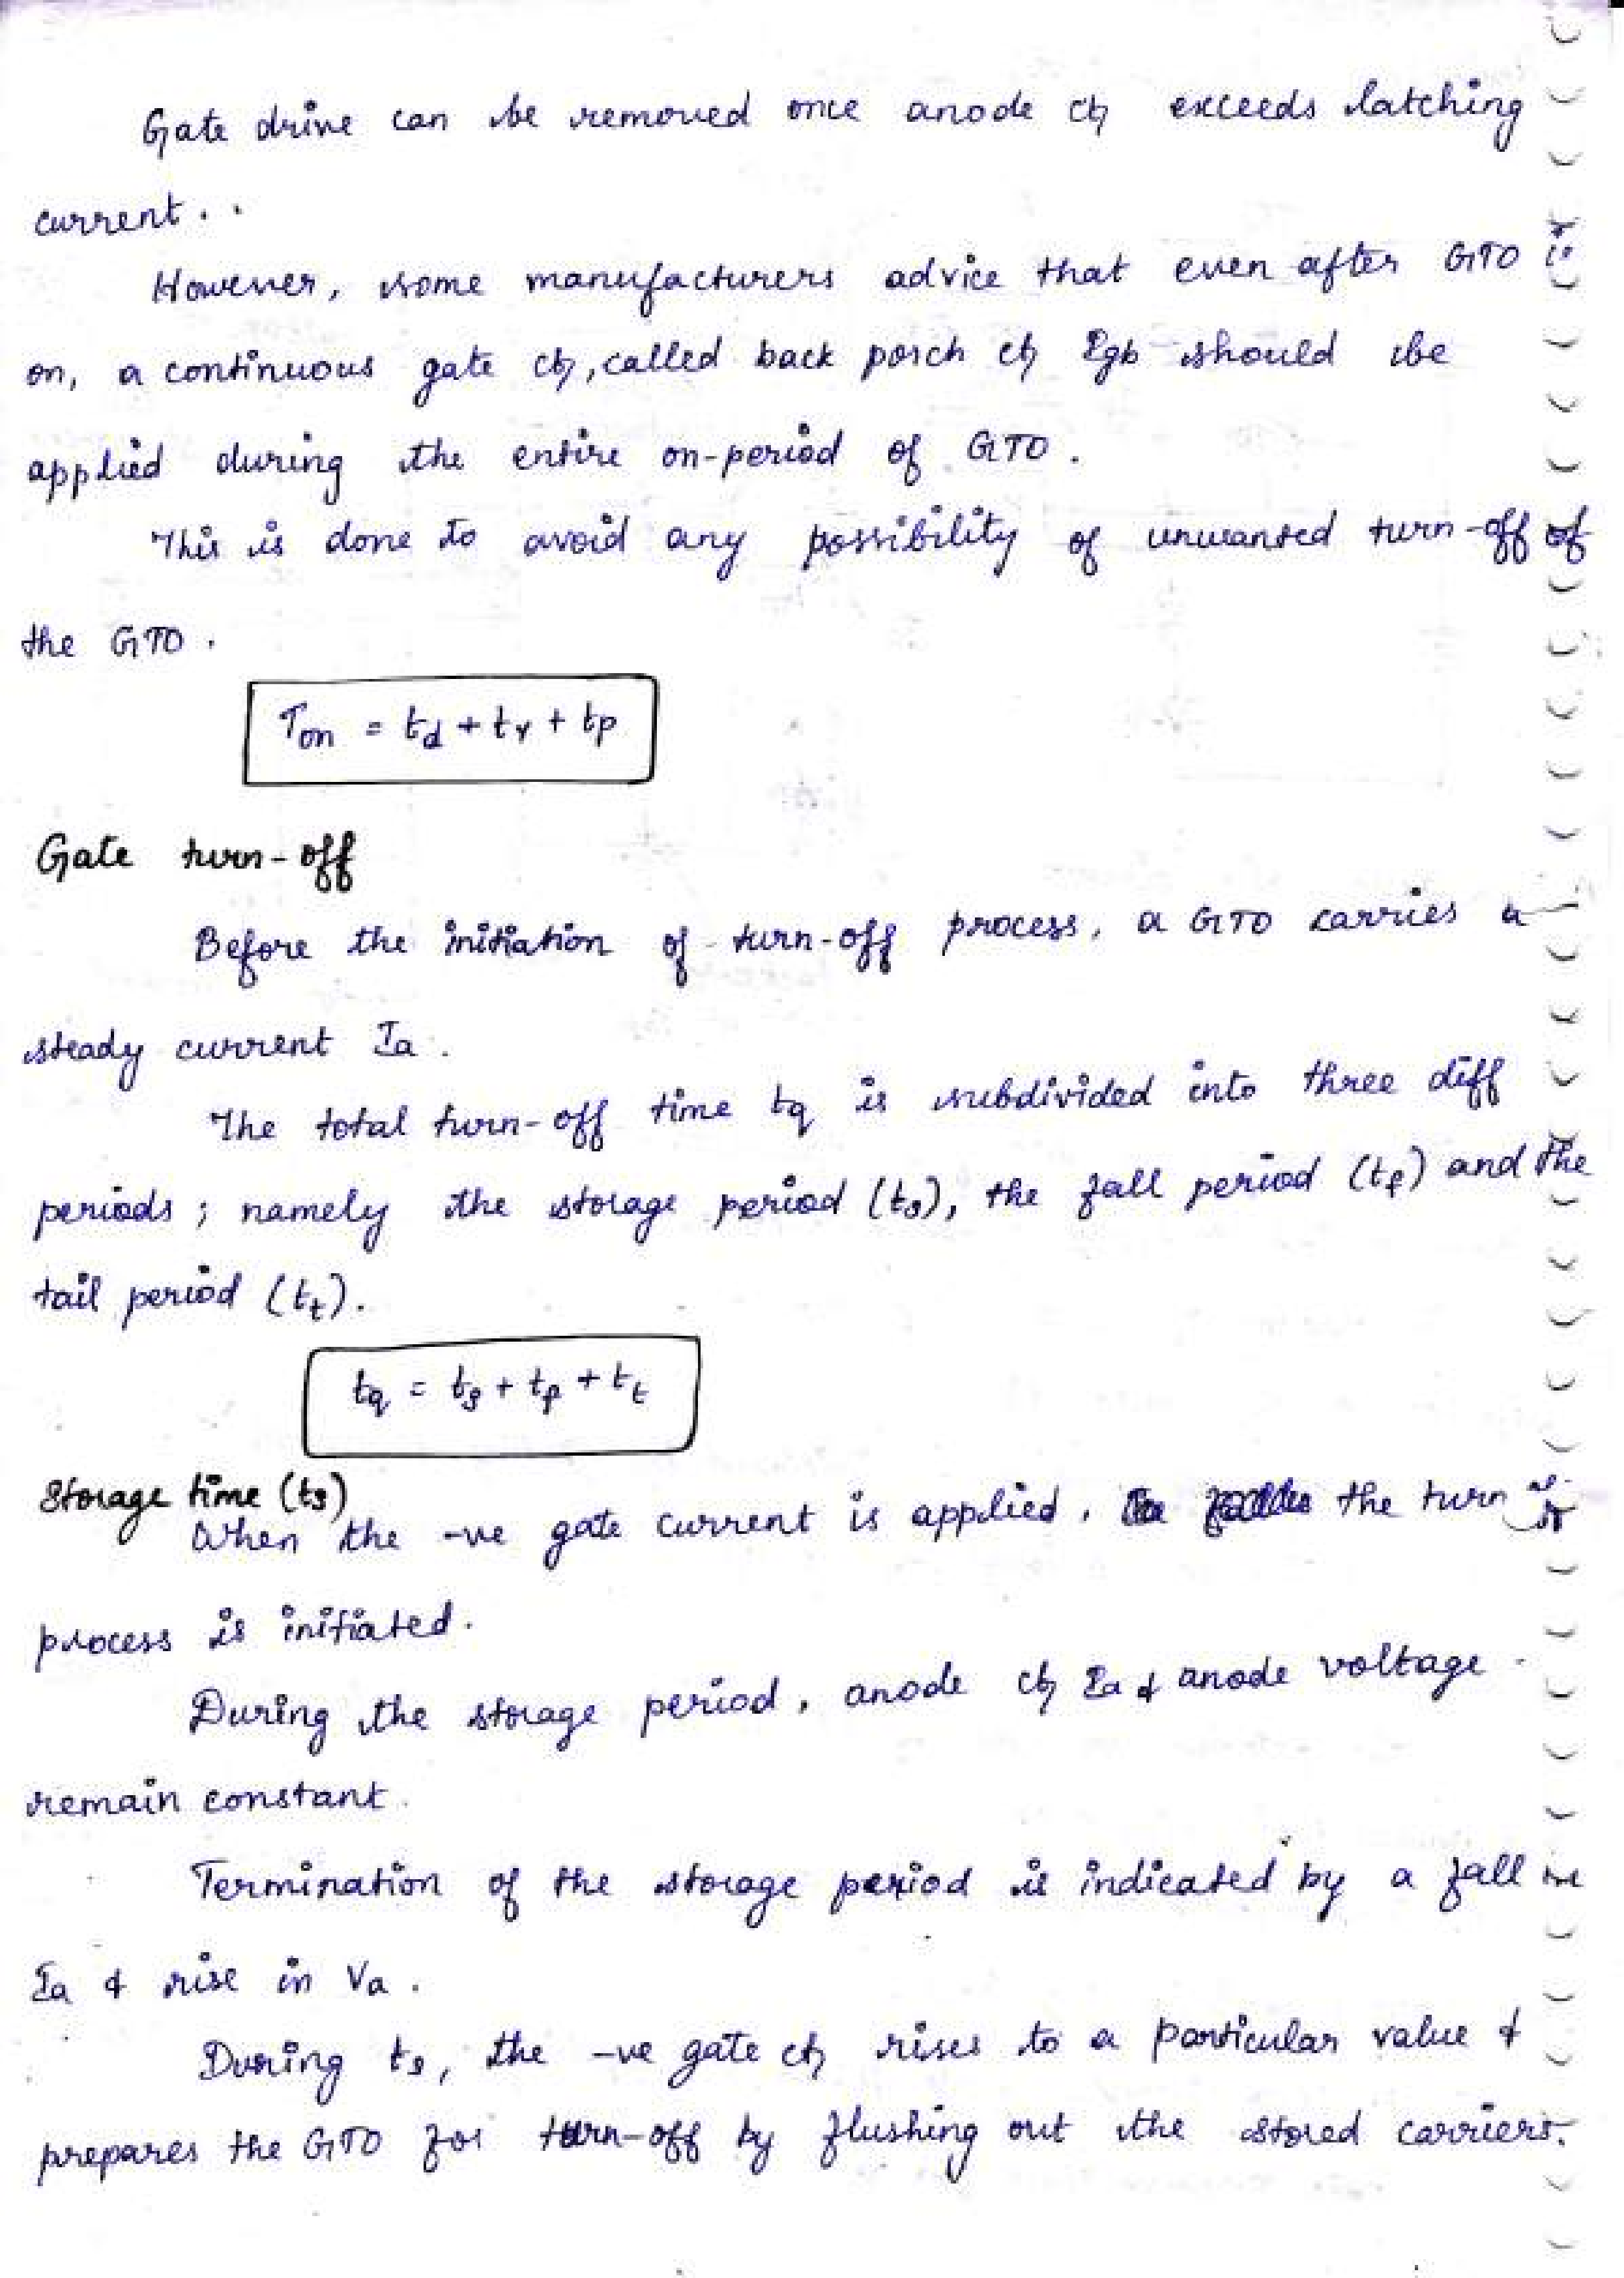 Gate drive can be removed once anode ct exceeds latching
current..
However, some manufacturers advice that even after GTO is
on, a continuous gate ct, called back porch ct Igb should be
applied during the entire on-period of GTO.
This is done to avoid any possibility of unwanted turn-off of
the GTO.
Ton = td + tr + tp
Gate turn-off
Before the initiation of turn-off process, a GTO carries a
steady current Ia.
The total turn-off time tq is subdivided into three diff
periods; namely the storage period (ts), the fall period (tf) and the
tail period (tt).
tq = ts + tf + tt
Storage time (ts)
When the -ve gate current is applied, the turn
process is initiated.
During the storage period, anode ct Ia & anode voltage
remain constant.
Termination of the storage period is indicated by a fall in
Ia & rise in Va.
During ts, the -ve gate ct rises to a particular value &
prepares the GTO for turn-off by flushing out the stored carriers.